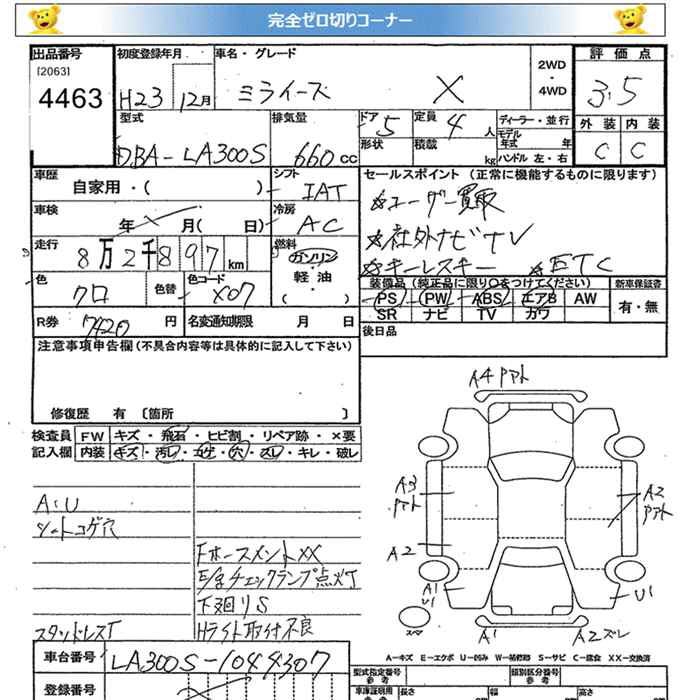 完全ゼロ切りコーナー
出品番号 初度登録年月 車名・グレード 2WD ・ 4WD 評価点
[2063]
4463 H23 12月 ミライース X 3.5
型式 排気量 ドア 5 定員 4人 ディーラー・並行 外装 内装
モデル年式 年
DBA-LA300S 660cc 形状 積載 kg ハンドル 左・右 C C
車歴 シフト セールスポイント (正常に機能するものに限ります)
自家用・( ) IAT ☆ユーザー買取
車検 冷房 ☆社外ナビTV
年 月( 日) AC ☆キーレスキー ☆ETC
走行 8万2千897km 燃料 ガソリン・軽油
装備品(純正品に限り○をつけてください) 新車保証書
色 クロ 色替 色コード X07 PS PW ABS エアB AW 有・無
SR ナビ TV カワ
R券 7420円 名変通知期限 月 日 後日品
注意事項申告欄(不具合内容等は具体的に記入して下さい)
修復歴 有〔箇所 〕
検査員記入欄 FW キズ・飛石・ヒビ割・リペア跡・×要
内装 キズ・汚レ・コゲ・穴・スレ・キレ・破レ
A:U
シートコゲ穴
FホースメントXX
E/gチェックランプ点灯
下廻りS
スタッドレスT Hライト取付不良
A4 アト
A3 アト A2 アト
A2
A1 U1 U1
スペア A1 A2 ズレ
A－キズ E－エクボ U－凹み W－補修跡 S－サビ C－腐食 XX－交換済
車台番号 LA300S-1044307
登録番号
型式指定番号 参考 類別区分番号 参考
車庫証明用 参考 長さ 幅 高さ